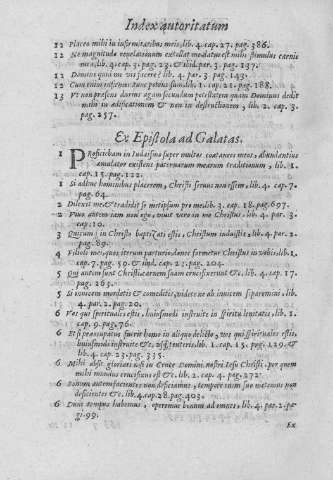 Index autoritatum
12 Placeo mihi in infirmitatibus meis, lib. 4. cap. 27. pag. 386.
12 Ne magnitudo revelationum extollat me datus est mihi stimulus carnis
meæ, lib. 4. cap. 3. pag. 23. & ibid. par. 3. pag. 137.
12 Dominus quod me vis facere? lib. 4. par. 3. pag. 143.
12 Cum enim infirmor tunc potens sum, lib. 1. cap. 21. pag. 188.
13 Ut non præsens durius agam secundum potestatem quam Dominus dedit
mihi in ædificationem & non in destructionem, lib. 2. cap. 3.
pag. 257.
Ex Epistola ad Galatas.
1 PRoficiebam in Iudaismo super multos coætaneos meos, abundantius
æmulator existens paternarum mearum traditionum, lib. 1.
cap. 15. pag. 122.
1 Si adhuc hominibus placerem, Christi servus non essem, lib. 4. cap. 7.
pag. 64.
2 Dilexit me & tradidit se metipsum pro me lib. 3. cap. 18. pag. 697.
2 Vivo autem iam non ego, vivit vero in me Christus, lib. 4. par. 3.
cap. 10.
3 Quicumque in Christo baptizati estis, Christum induistis, lib. 4. par. 2.
pag. 89.
4 Filioli mei, quos iterum parturio, donec formetur Christus in vobis, lib. 1.
cap. 7. pag. 59. & cap. 23. pag. 204.
5 Qui autem sunt Christi carnem suam crucifixerunt &c. lib. 4. cap. 17.
pag. 263.
5 Si invicem mordetis & comeditis, videte ne ab invicem
4. par. 2. pag. 20.
6 Vos qui spirituales estis, huiusmodi instruite in spiritu lenitatis, lib. 1.
cap. 9. pag. 76.
6 Et si præoccupatus fuerit homo in aliquo delicto, vos qui spirituales estis,
huiusmodi instruite &c. lib. 1. cap. 15. pag. 129. &
lib. 4. cap. 23. pag. 335.
6 Mihi absit gloriari nisi in Cruce Domini nostri Iesu Christi, per quem
mihi mundus crucifixus est &c. lib. 2. cap. 4. pag. 272.
6 Bonum autem facientes non deficiamus, tempore enim suo metemus non
deficientes &c. lib. 4. cap. 28. pag. 403.
6 Dum tempus habemus, operemur bonum ad omnes, lib. 4. par. 2. pa-
gi. 99.
Ex